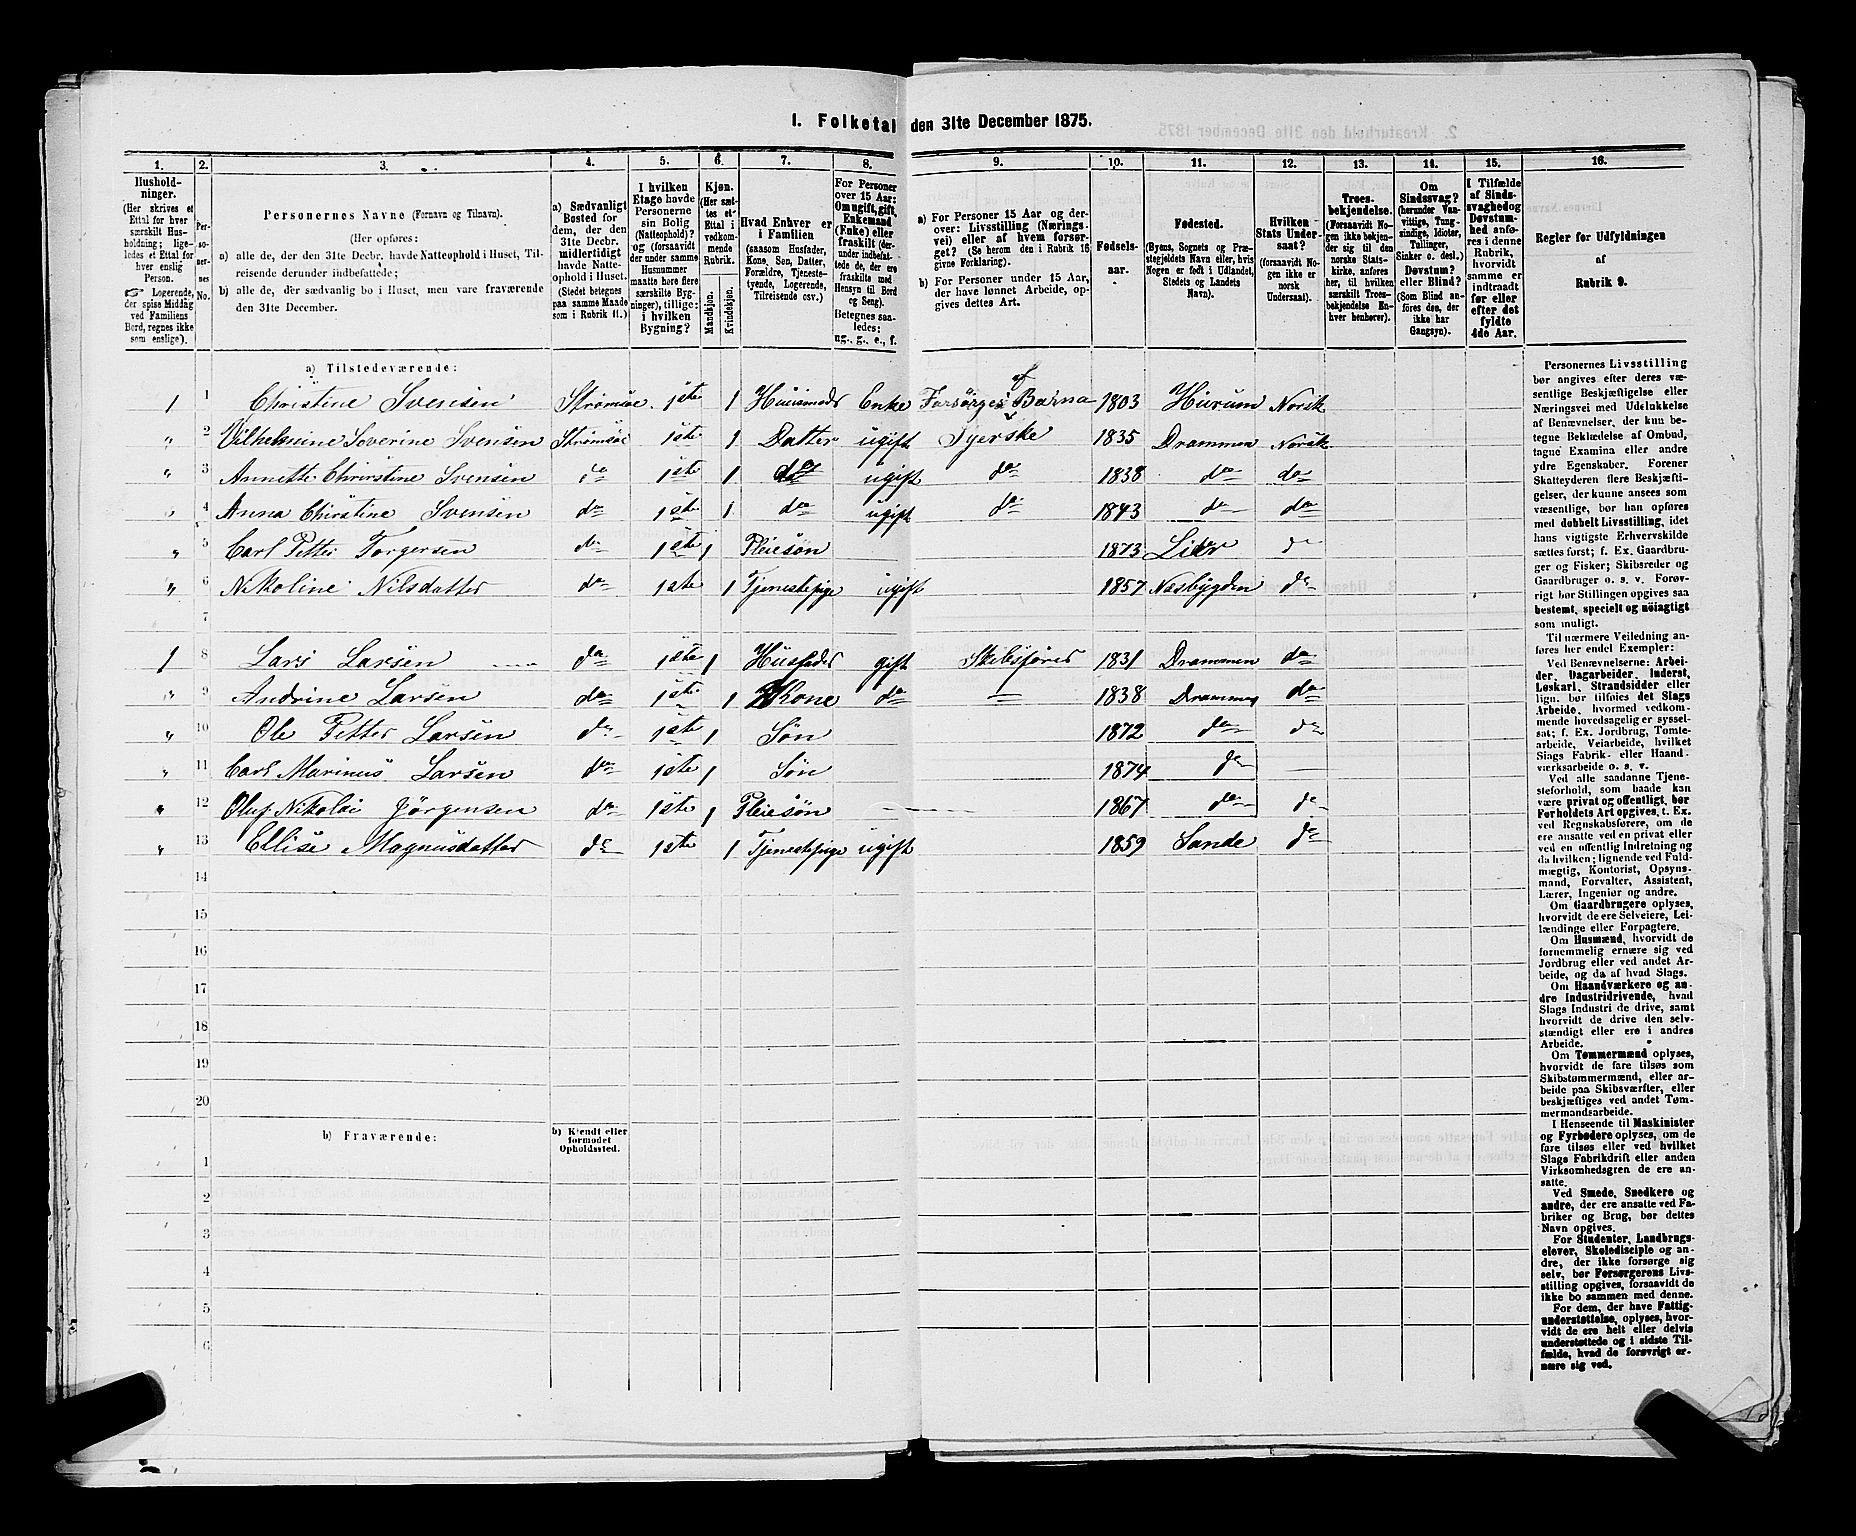 I. Folketal den 31te December 1875.
1. 2. 3. 4. 5. 6. 7. 8. 9. 10. 11. 12. 13. 14. 15. 16.
Husholdninger. (Her skrives et Ettal for hver særskilt Husholdning; ligeledes et Ettal for hver enslig Person. ☞ Logerende, der spise Middag ved Familiens Bord, regnes ikke som enslige).
Personernes No.
Personernes Navne (Fornavn og Tilnavn).
(Her opføres:
a) alle de, der den 31te Decbr. havde Natteophold i Huset, Tilreisende derunder indbefattede;
b) alle de, der sædvanlig bo i Huset, men vare fraværende den 31te December.
a) Sædvanligt Bosted for dem, der den 31te Decbr. midlertidigt havde Natteophold i Huset. (Stedet betegnes paa samme Maade som i Rubrik 11.)
I hvilken Etage havde Personerne sin Bolig (Natteophold)? og (forsaavidt der under samme Husnummer maatte høre flere særskilte Bygninger), tillige: i hvilken Bygning?
Kjøn. (Her sættes et Ettal i vedkommende Rubrik.
Mandkjøn. Kvindekjøn.
Hvad Enhver er i Familien (saasom Husfader, Kone, Søn, Datter, Forældre, Tjenestetyende, Logerende, Tilreisende osv.)
For Personer over 15 Aar: Om ugift, gift, Enkemand (Enke) eller fraskilt (derunder indbefattede de, der ere fraskilte med Hensyn til Bord og Seng). Betegnes saaledes: ug., g., e., f.
a) For Personer 15 Aar og derover: Livsstilling (Næringsvei) eller af hvem forsørget? (Se herom den i Rubrik 16 givne Forklaring).
b) For Personer under 15 Aar, der have lønnet Arbeide, opgives dettes Art.
Fødselsaar.
Fødested. (Byens, Sognets og Præstegjeldets Navn eller, hvis Nogen er født i Udlandet, Stedets og Landets Navn).
Hvilken Stats Undersaat? (forsaavidt Nogen ikke er norsk Undersaat).
Troesbekjendelse. (Forsaavidt Nogen ikke bekjender sig til den norske Statskirke, anføres her, til hvilken særskilt Troesbekjendelse Enhver henhører).
Om Sindssvag? (herunder Vanvittige, Tungsindige, Idioter, Tullinger, Sinker o. desl.) Døvstum? eller Blind? (Som Blind anføres den, der ikke har Gangsyn).
I Tilfælde af Sindssvaghed og Døvstumhed anføres i denne Rubrik, hvorvidt samme er indtraadt før eller efter det fyldte 4de Aar.
Regler for Udfyldningen af Rubrik 9.
a) Tilstedeværende:
1 1 Christine Svensen Strømsøe. 1ste 1 Huusmoder Enke Forsørges af Børna 1803 Hurum Norsk
" 2 Vilhelmine Severine Svensen Strømsøe 1ste 1 Datter ugift Syerske 1835 Drammen Norsk
" 3 Annette Christine Svensen do 1ste 1 do ugift do 1838 do do
" 4 Anna Christine Svensen do 1ste 1 do ugift do 1843 do do
" 5 Carl Petter Torgersen do 1ste 1 Pleiesøn 1873 Lier do
" 6 Nikoline Nilsdatter do 1ste 1 Tjenestepige ugift 1857 Næsbygden do
7
1 8 Lars Larsen do 1ste 1 Husfader gift Skibsfører 1831 Drammen do
" 9 Andrine Larsen do 1ste 1 Kone do 1838 Drammen do
" 10 Ole Petter Larsen do 1ste 1 Søn 1872 do do
" 11 Carl Marinus Larsen do 1ste 1 Søn 1874 do
" 12 Oluf Nikolai Jørgensen do 1ste 1 Pleiesøn 1867 do do
" 13 Ellise Magnusdatter do 1ste 1 Tjenestepige ugift 1859 Sande do
14
15
16
17
18
19
20
b) Fraværende:
b) Kjendt eller formodet Opholdssted.
1
2
3
4
5
6
Personernes Livsstilling
bør angives efter deres væ-
sentlige Beskjæftigelse eller
Næringsvei med Udelukkelse
af Benævnelser, der kun be-
tegne Beklædelse af Ombud,
tagne Examina eller andre
ydre Egenskaber. Forener
Skatteyderen flere Beskjæfti-
gelser, der kunne ansees som
væsentlige, bør han opføres
med dobbelt Livsstilling, idet
hans vigtigste Erhvervskilde
sættes først; f. Ex. Gaardbru-
ger og Fisker; Skibsreder og
Gaardbruger o. s. v. Forøv-
rigt bør Stillingen opgives saa
bestemt, specielt og nøiagtigt
som muligt.
Til nærmere Veiledning an-
føres her endel Exempler:
Ved Benævnelserne: Arbei-
der, Dagarbeider, Inderst,
Løskarl, Strandsidder eller
lign. bør tilføies det Slags
Arbeide, hvormed vedkom-
mende hovedsagelig er syssel-
sat; f. Ex. Jordbrug, Tomte-
arbeide, Veiarbeide, hvilket
Slags Fabrik- eller Haand-
værksarbeide o. s. v.
Ved alle saadanne Tjene-
steforhold, som baade kan
være privat og offentligt, bør
Forholdets Art opgives, t. Ex.
ved Regnskabsførere, om de
ere ansatte ved en privat eller
ved en offentlig Indretning og
da hvilken; lignende ved Fuld-
mægtig, Kontorist, Opsyns-
mand, Forvalter, Assistent,
Lærer, Ingeniør og andre.
Om Gaardbrugere oplyses,
hvorvidt de ere Selveiere, Lei-
lændinge eller Forpagtere.
Om Husmænd, hvorvidt de
fornemmelig ernære sig ved
Jordbrug eller ved andet Ar-
beide, og da af hvad Slags.
Om Haandværkere og an-
dre Industridrivende, hvad
Slags Industri de drive, samt
hvorvidt de drive den selv-
stændigt eller ere i andres
Arbeide.
Om Tømmermænd oplyses,
hvorvidt de fare tilsøs som
Skibstømmermænd, eller ar-
beide paa Skibsværfter, eller
beskjæftiges ved andet Tøm-
mermandsarbeide.
I Henseende til Maskinister
og Fyrbødere oplyses, om de
fare tilsøs eller ved hvilket
Slags Fabrikdrift eller anden
Virksomhedsgren de ere an-
satte.
Ved Smede, Snedkere og
andre, der ere ansatte ved Fa-
briker og Brug, bør dettes
Navn opgives.
For Studenter, Landbrugs-
elever, Skoledisciple og an-
dre, der ikke forsørge sig
selv, bør Forsørgerens Livs-
stilling opgives, forsaavidt de
ikke bo sammen med denne.
For dem, der have Fattig-
understøttelse, oplyses, hvor-
vidt de ere helt eller delvis
understøttede og i sidste Til-
fælde, hvad de forøvrigt er-
nære sig ved.